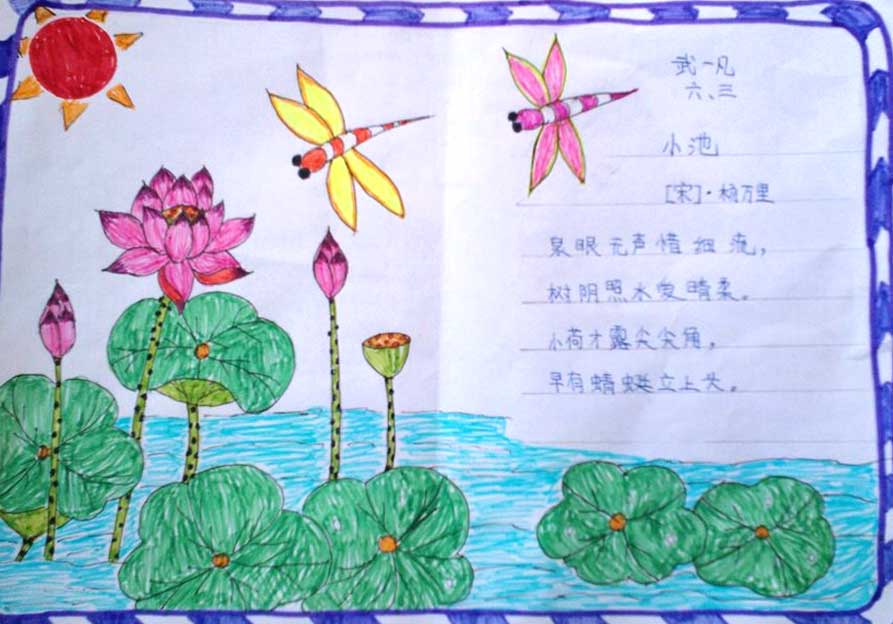 武一凡
六、三
小池
[宋]·杨万里
泉眼无声惜细流，
树阴照水爱晴柔。
小荷才露尖尖角，
早有蜻蜓立上头。